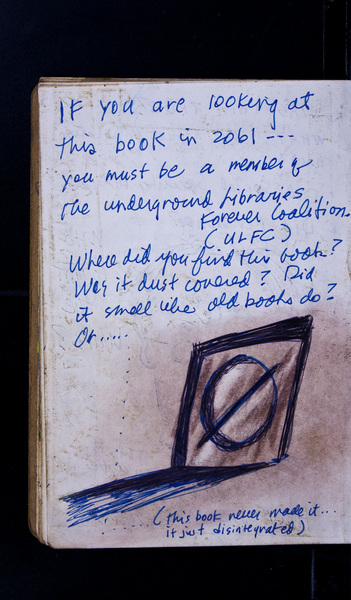 IF you are looking at
this book in 2061 ---
you must be a member of
the underground Libraries
Forever Coalition.
(ULFC)
Where did you find this book?
Was it dust covered? Did
it smell like old books do?
Or.....
(this book never made it...
it just disintegrated)